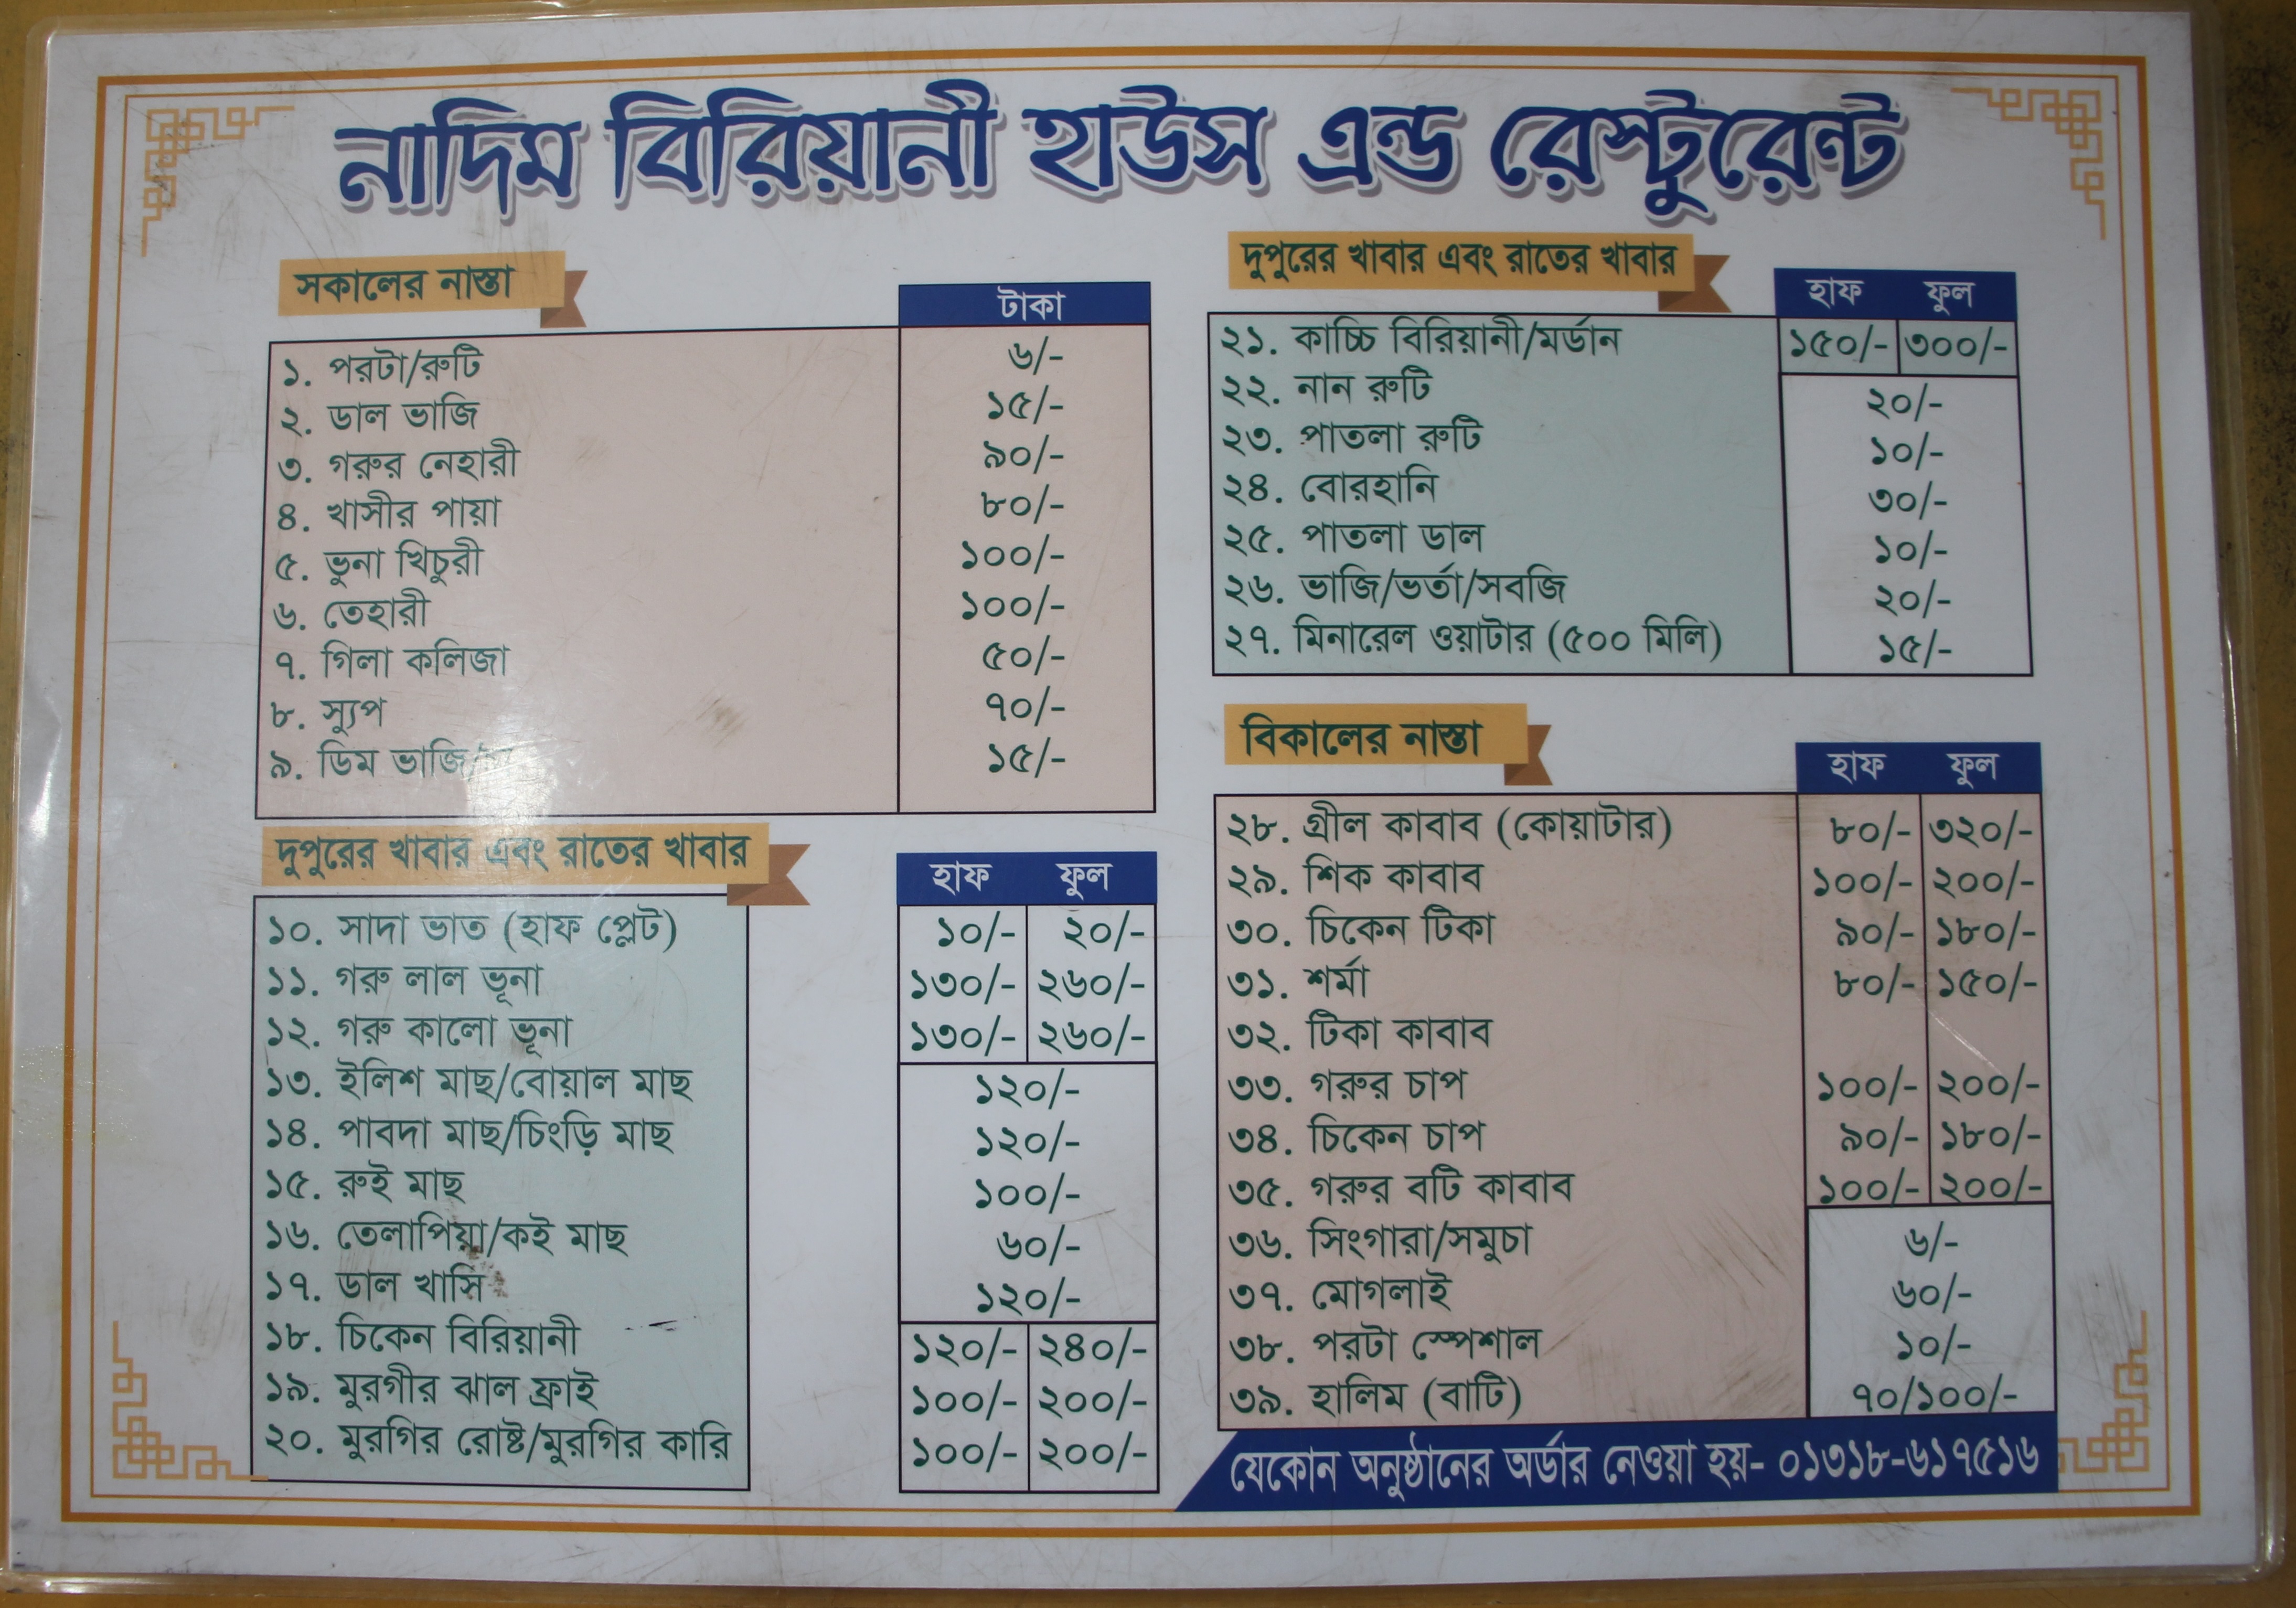 নাদিম বিরিয়ানী হাউস এন্ড রেস্টুরেন্ট
সকালের নাস্তা
টাকা
১. পরটা/রুটি ৬/-
২. ডাল ভাজি ১৫/-
৩. গরুর নেহারী ৯০/-
৪. খাসীর পায়া ৮০/-
৫. ভুনা খিচুরী ১০০/-
৬. তেহারী ১০০/-
৭. গিলা কলিজা ৫০/-
৮. স্যুপ ৭০/-
৯. ডিম ভাজি/ ১৫/-
দুপুরের খাবার এবং রাতের খাবার
হাফ ফুল
১০. সাদা ভাত (হাফ প্লেট) ১০/- ২০/-
১১. গরু লাল ভূনা ১৩০/- ২৬০/-
১২. গরু কালো ভূনা ১৩০/- ২৬০/-
১৩. ইলিশ মাছ/বোয়াল মাছ ১২০/-
১৪. পাবদা মাছ/চিংড়ি মাছ ১২০/-
১৫. রুই মাছ ১০০/-
১৬. তেলাপিয়া/কই মাছ ৬০/-
১৭. ডাল খাসি ১২০/-
১৮. চিকেন বিরিয়ানী ১২০/- ২৪০/-
১৯. মুরগীর ঝাল ফ্রাই ১০০/- ২০০/-
২০. মুরগির রোষ্ট/মুরগির কারি ১০০/- ২০০/-
দুপুরের খাবার এবং রাতের খাবার
হাফ ফুল
২১. কাচ্চি বিরিয়ানী/মর্ডান ১৫০/- ৩০০/-
২২. নান রুটি ২০/-
২৩. পাতলা রুটি ১০/-
২৪. বোরহানি ৩০/-
২৫. পাতলা ডাল ১০/-
২৬. ভাজি/ভর্তা/সবজি ২০/-
২৭. মিনারেল ওয়াটার (৫০০ মিলি) ১৫/-
বিকালের নাস্তা
হাফ ফুল
২৮. গ্রীল কাবাব (কোয়াটার) ৮০/- ৩২০/-
২৯. শিক কাবাব ১০০/- ২০০/-
৩০. চিকেন টিকা ৯০/- ১৮০/-
৩১. শর্মা ৮০/- ১৫০/-
৩২. টিকা কাবাব
৩৩. গরুর চাপ ১০০/- ২০০/-
৩৪. চিকেন চাপ ৯০/- ১৮০/-
৩৫. গরুর বটি কাবাব ১০০/- ২০০/-
৩৬. সিংগারা/সমুচা ৬/-
৩৭. মোগলাই ৬০/-
৩৮. পরটা স্পেশাল ১০/-
৩৯. হালিম (বাটি) ৭০/১০০/-
যেকোন অনুষ্ঠানের অর্ডার নেওয়া হয়- ০১৩১৮-৬১৭৫১৬